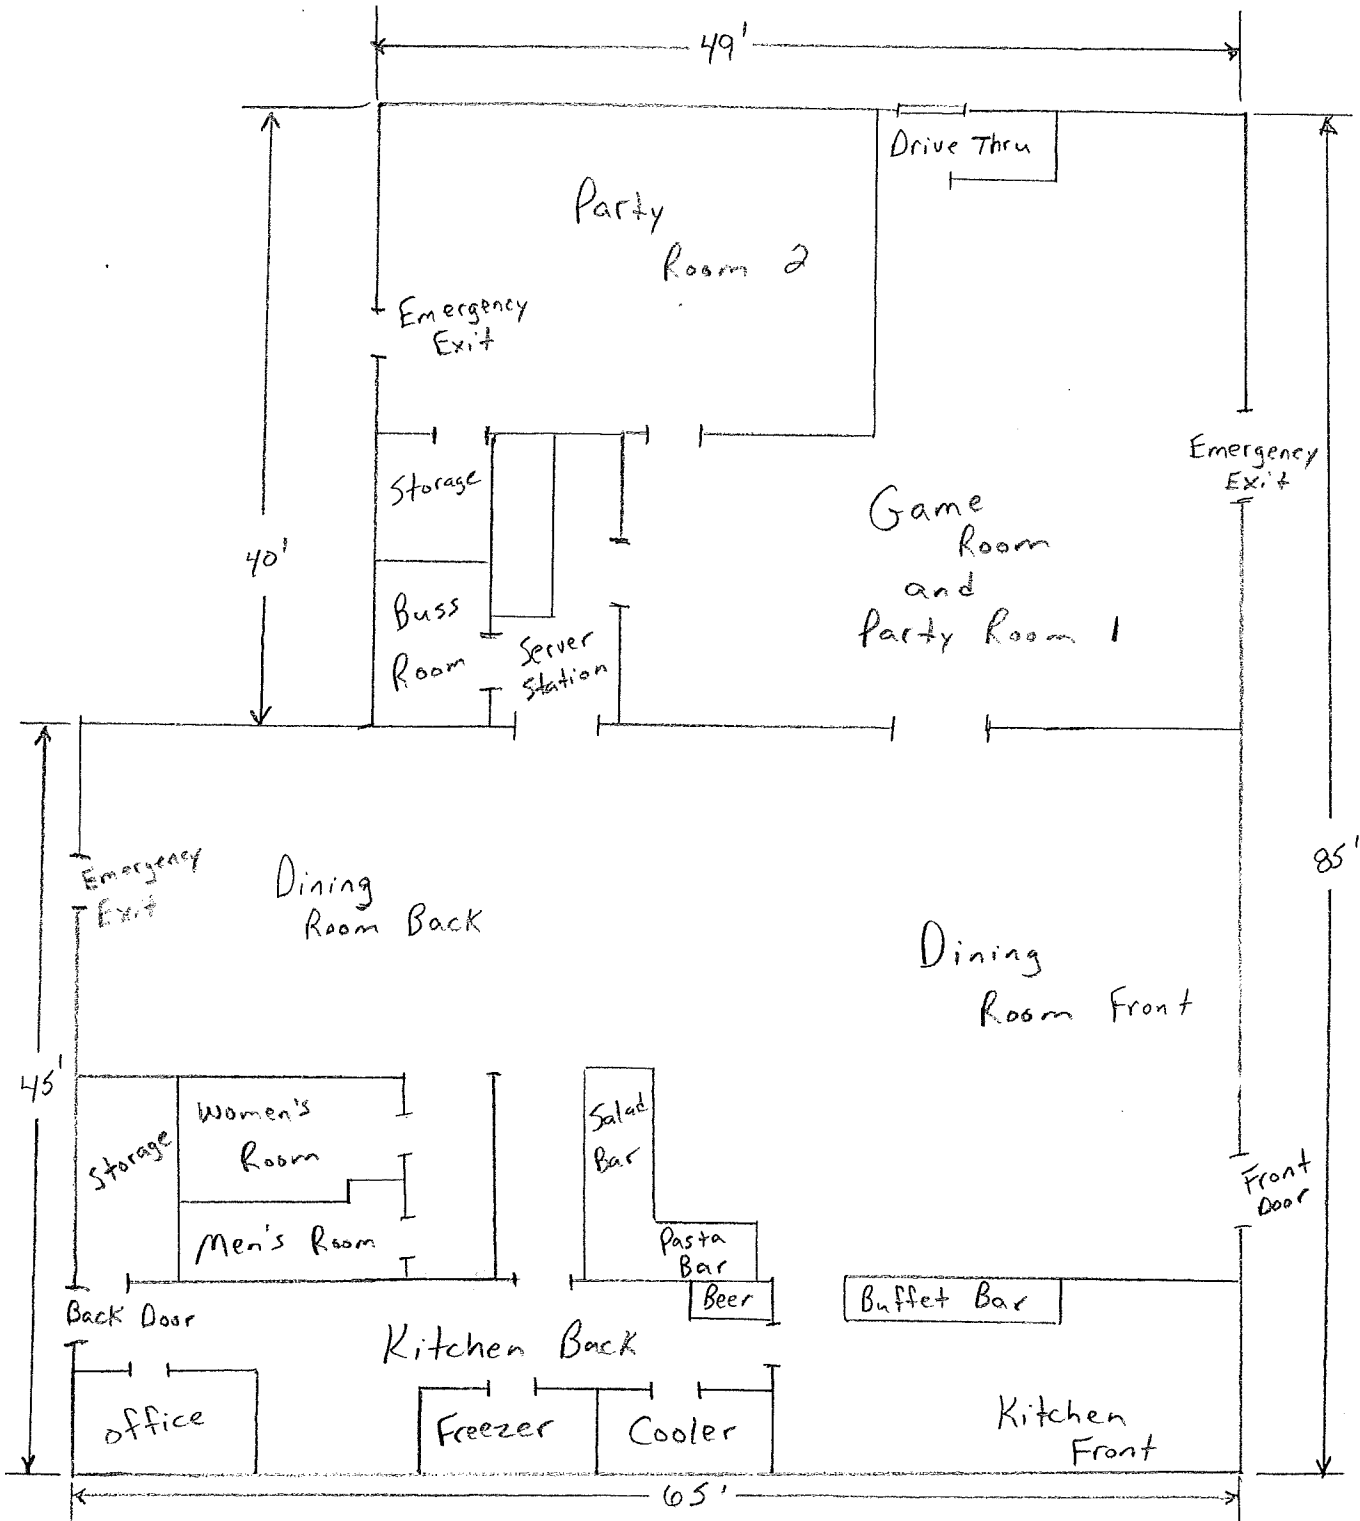 49'
Drive Thru
Party
Room 2
Emergency
Exit
Emergency
Exit
Storage
Game
Room
and
Party Room 1
40'
Buss
Room
Server
Station
85'
Emergency
Exit
Dining
Room Back
Dining
Room Front
45'
Storage
Women's
Room
Men's Room
Salad
Bar
Pasta
Bar
Front
Door
Beer
Buffet Bar
Back Door
Kitchen Back
Office
Freezer
Cooler
Kitchen
Front
65'